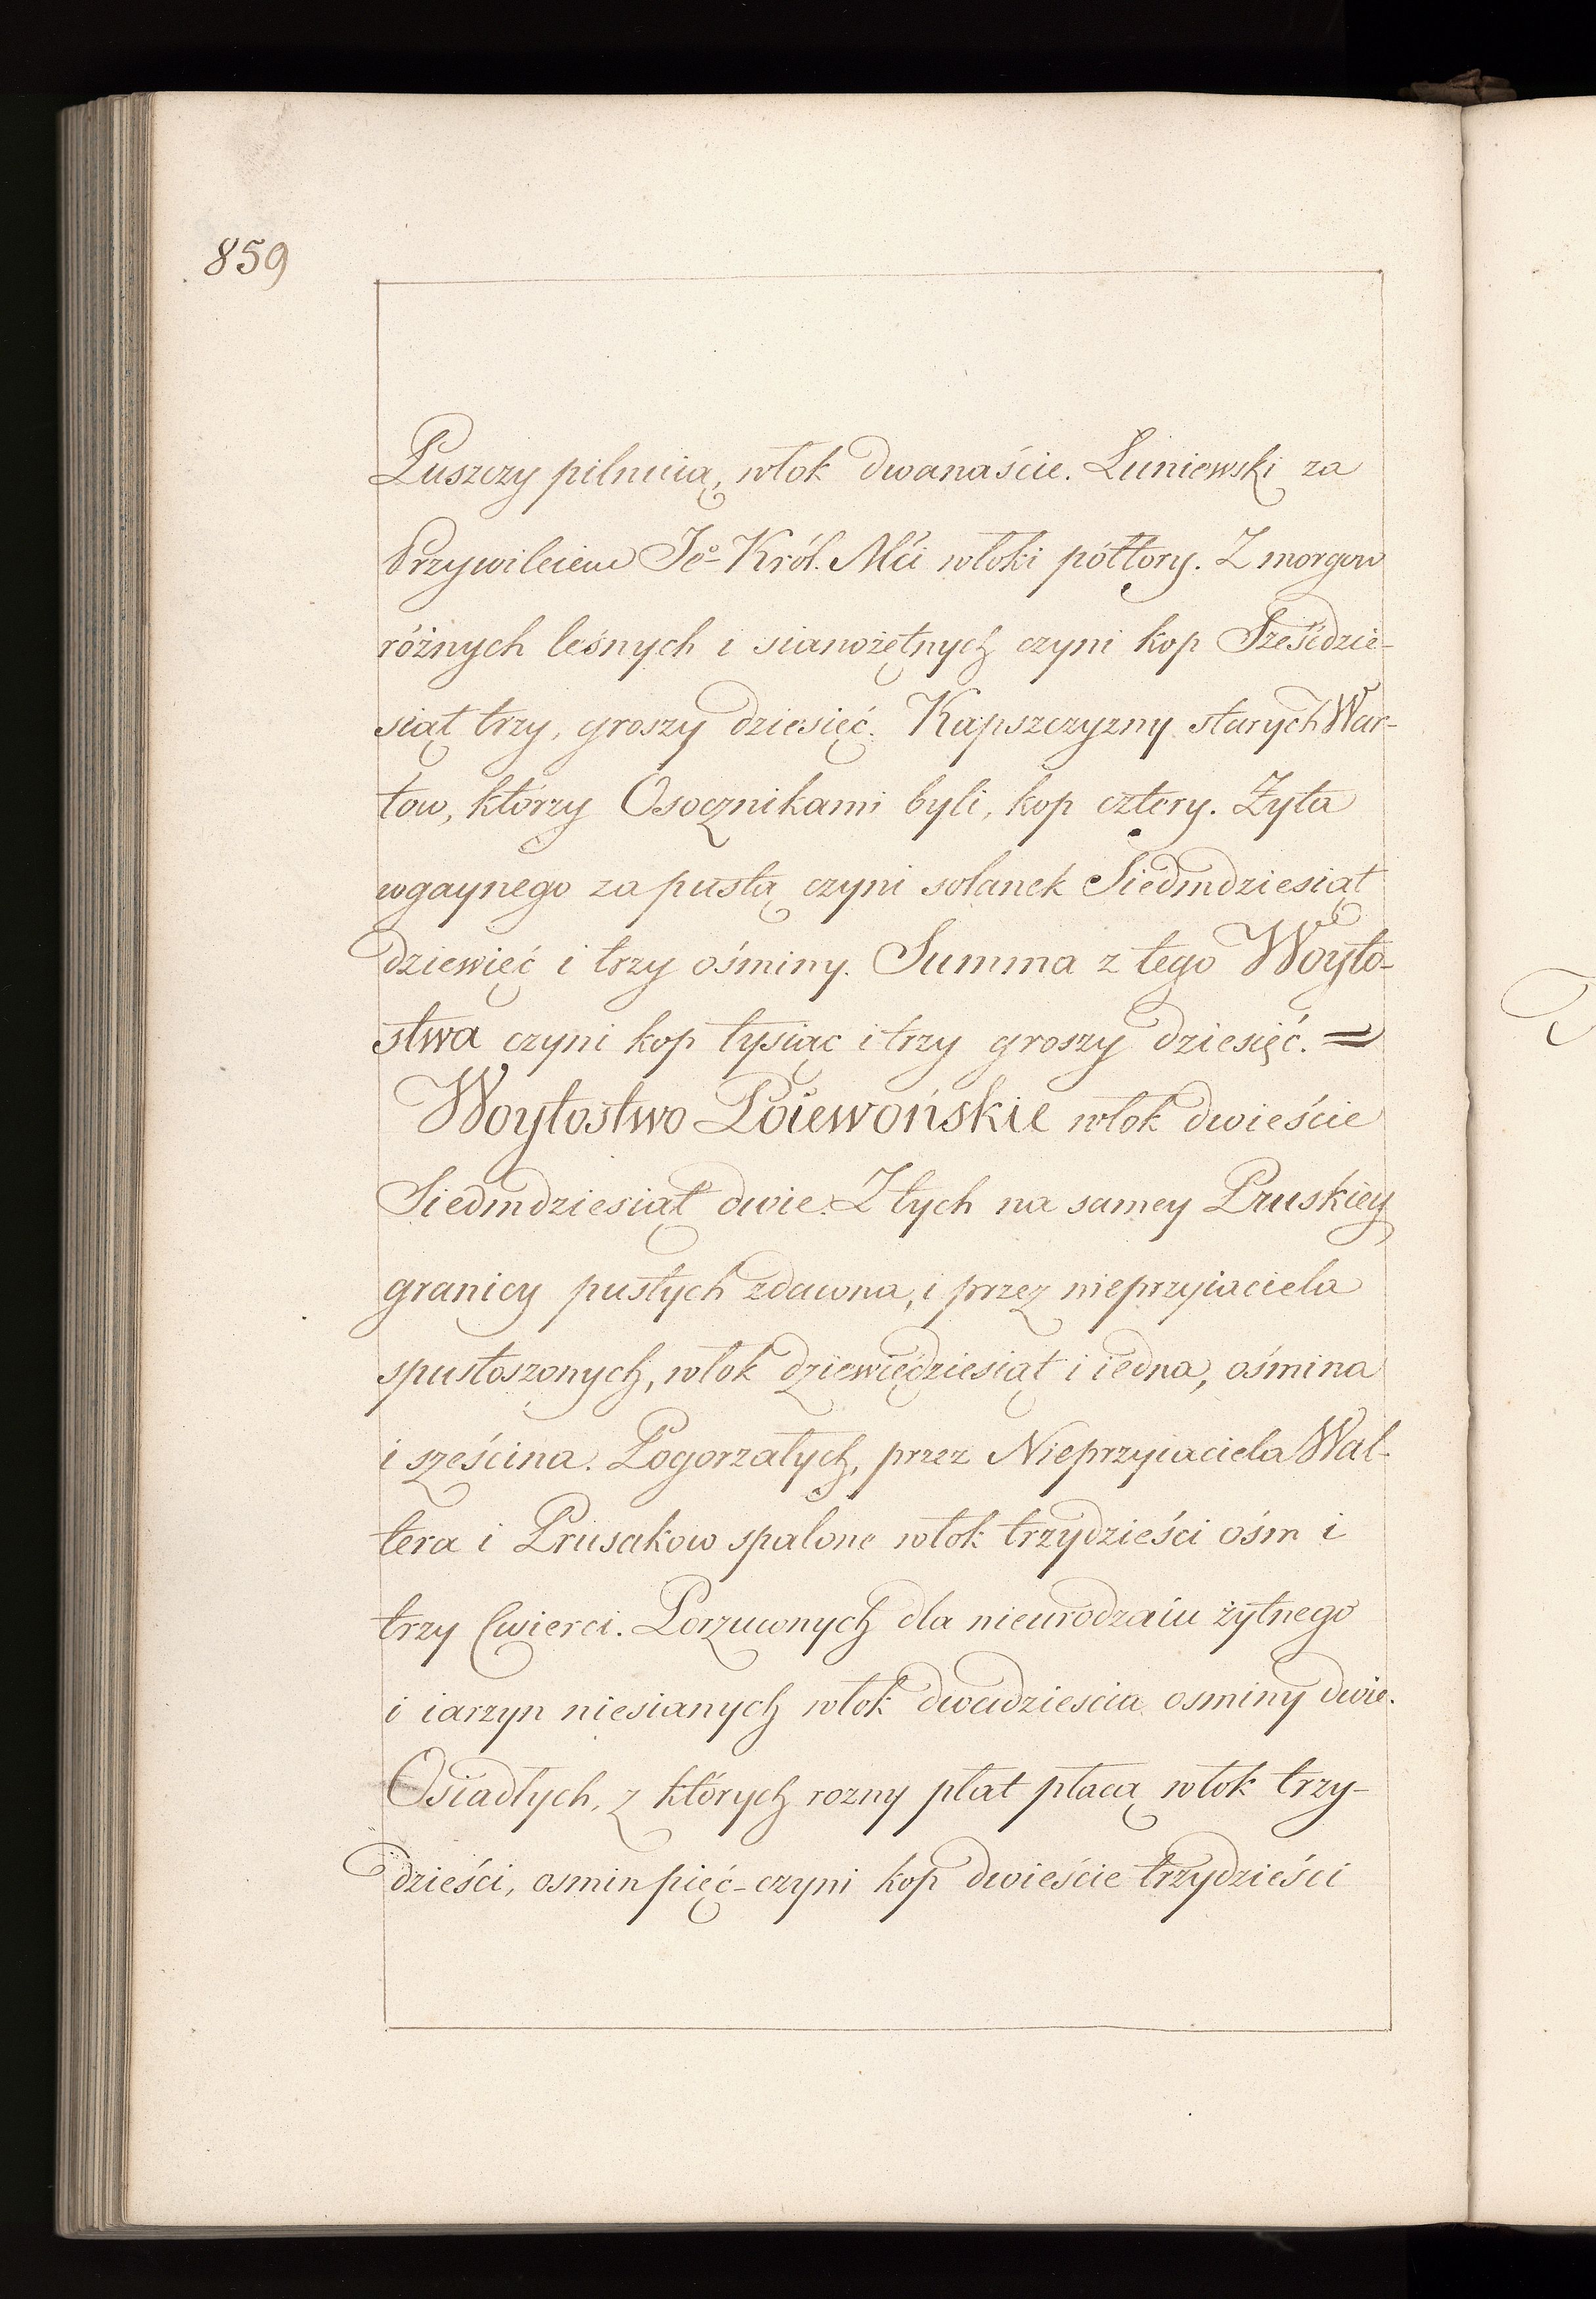 859
Puszczy pilnuią, włok dwanaście. Luniewski za
Przywileiem Jeº Król. Mći włoki półtory. Z morgow
różnych leśnych i sianożętnych czyni kop Sześćdzie-
siąt trzy, groszy dziesięć. Kapszczyzny starych War-
tow, którzy Osocznikami byli, kop cztery. Żyta
wgaynego za pustą czyni solanek Siedmdziesiąt
dziewięć i trzy ośminy. Summa z tego Woyto-
stwa czyni kop tysiąc i trzy groszy dziesięć. =
Woytostwo Poiewońskie włok dwieście
Siedmdziesiąt dwie. Z tych na samey Pruskiey
granicy pustych zdawna, i przez nieprzyiaciela
spustoszonych, włok dziewiędziesiąt i iedna, ośmina
i sześcina. Pogorzałych, przez Nieprzyiaciela Wal-
tera i Prusakow spalone włok trzydzieści ośm i
trzy Cwierci. Porzuconych dla nieurodzaiu żytnego
i iarzyn niesianych włok dwadziescia osminy dwie.
Osiadłych, z których rozny płat płacą włok trzy-
dzieści, osmin pięć - czyni kop dwieście trzydzieści